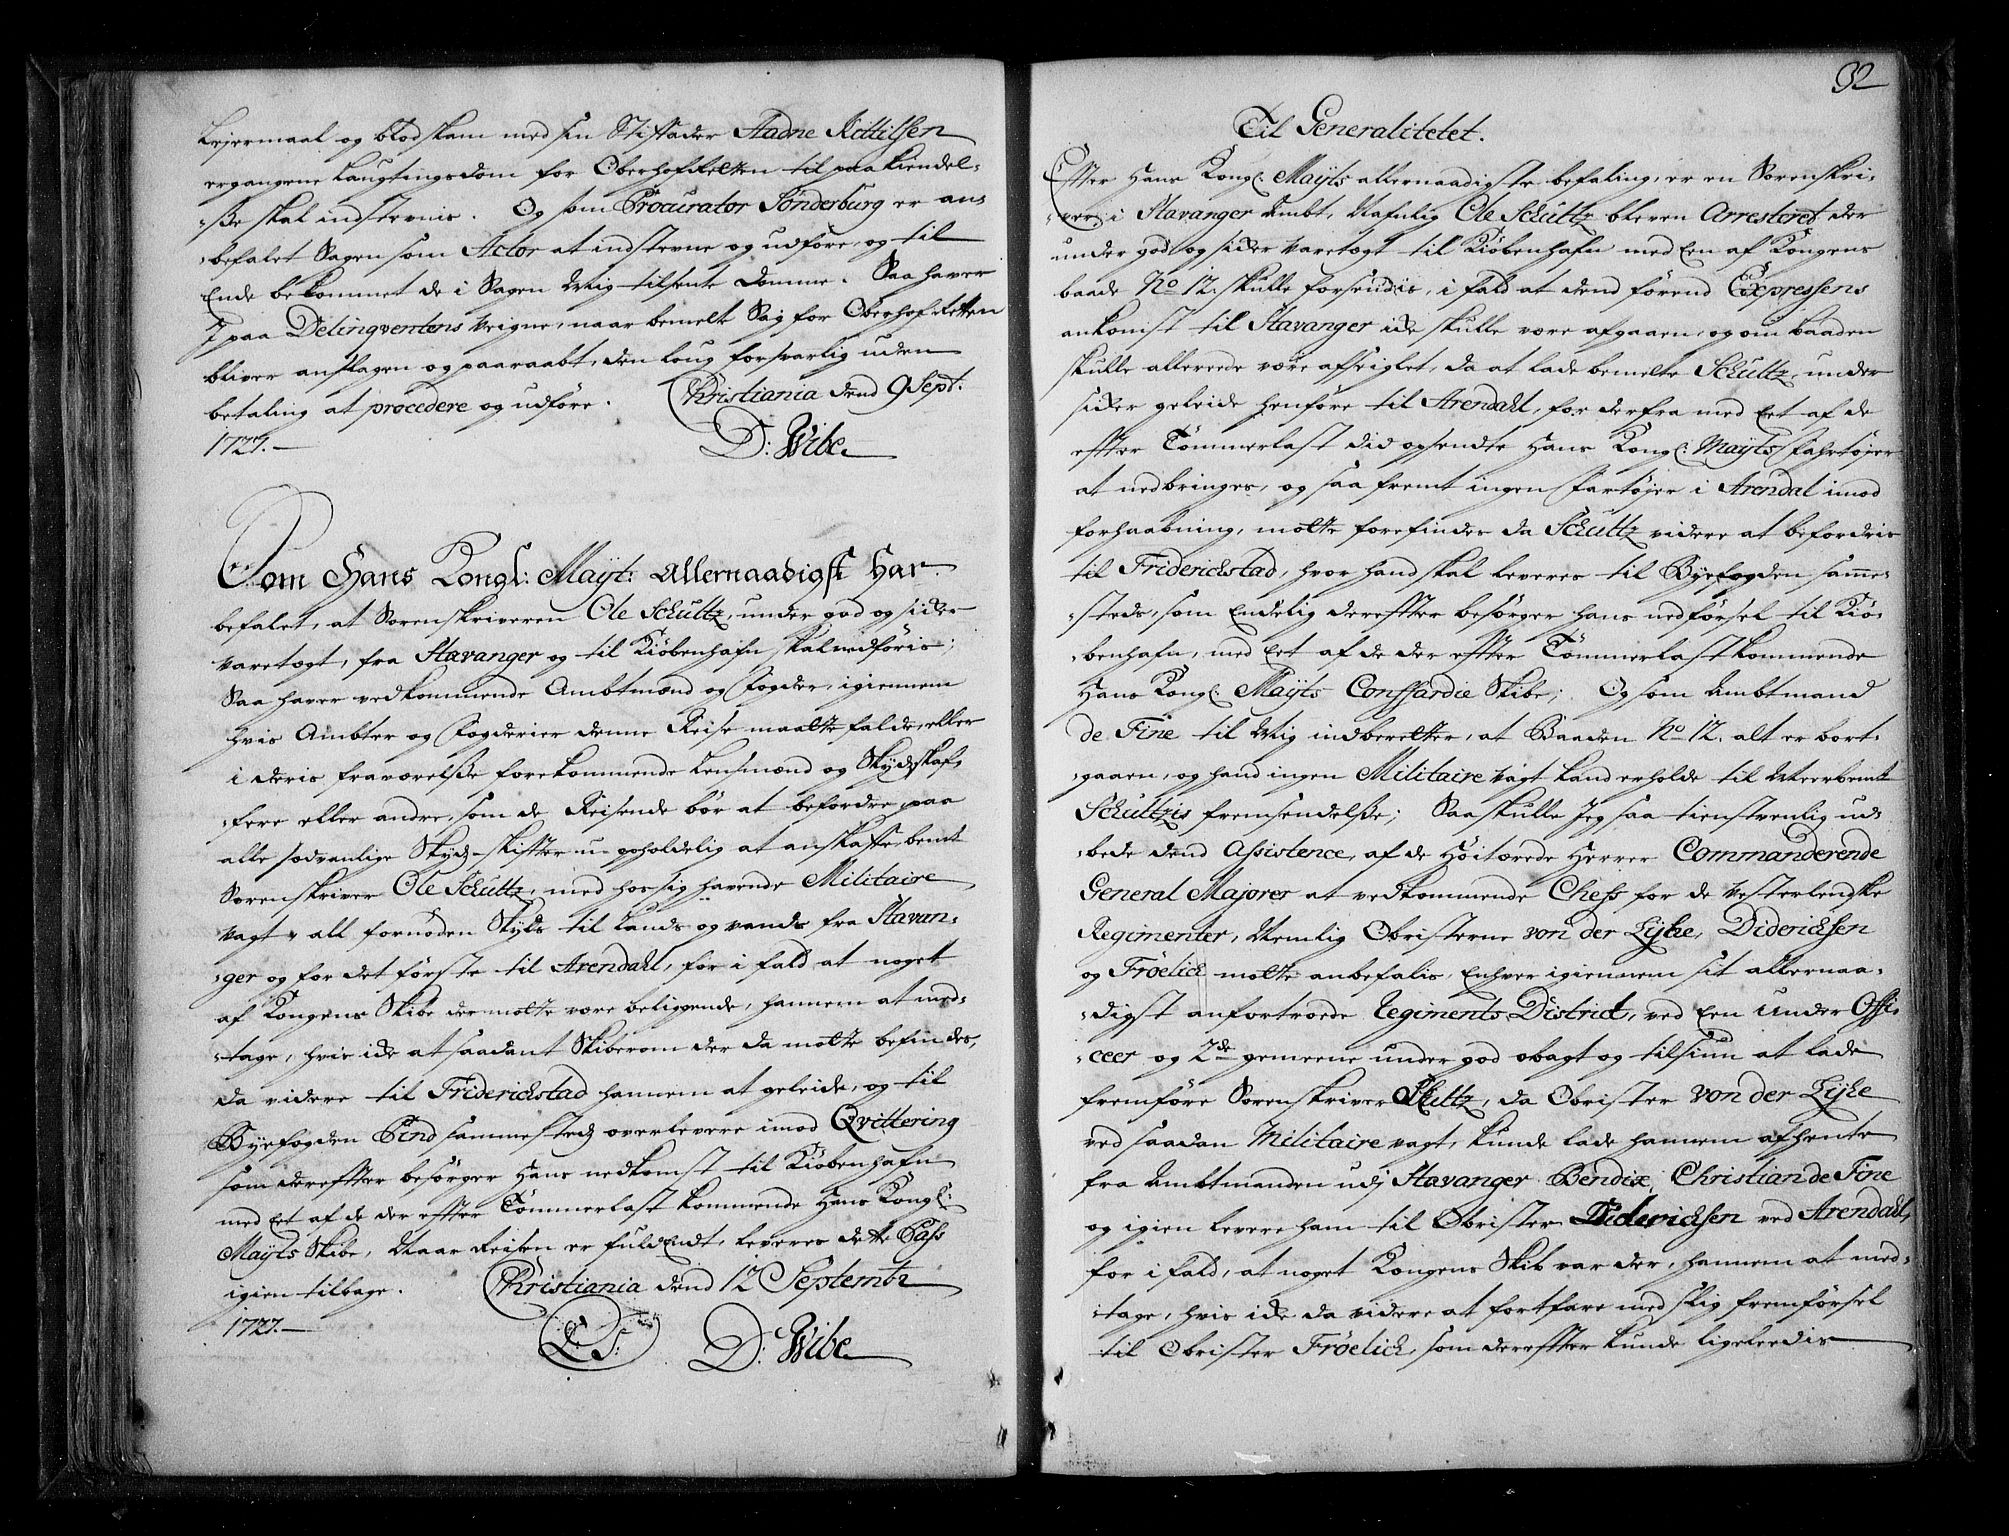 Lejermaal og blodskam med sin Stiffader Aadne Kittilsen
ergangene Laugtingsdom for Oberhofretten til paakiendel-
-ße skal indstevnis. Og som Procurator Sönderburg er an-
-befalet Sagen som Actor at indstevne og udföre, og til
Ende bekommet de i Sagen Mig tilsente Domme. Saa haver
I paa Delinqventens veigne, naar bemelte Sag for Oberhofretten
bliver anslagen og paaraabt, den loug forsvarlig uden
betaling at procedere og udföre. Christiania dend 9 Sept.
1727. D: Wibe
Som Hans Kongl: Mayt: Allernaadigst Har
befalet, at Sorenskriveren Ole Schultz, under god og sicker
varetægt, fra Stavanger og til Kiöbenhafn skal nedföris;
Saa haver vedkommende Ambtmænd og Fogder, igiennem
hvis Ambter og Fogderier denne Reise maatte falde, eller
i deris fraværelße forekommende Lensmænd og Skydsskaf-
-fere eller andre, som de Reisende bör at befordre, paa
alle sædvanlige Skyds-skiffter u-opholdelig at anskaffe bemte
Sorenskriver Ole Schultz, med hos sig havende Militaire
vagt, all fornöden Skyds til Lands og vands fra Stavan-
-ger og for det förste til Arendahl, for i fald at noget
af Kongens Skibe der motte være beliggende, hannem at med-
-tage, hvis icke at saadant Skiberom der da motte befindes,
da videre til Friderichstad hannem at geleide, og til
Byefogden Find sammesteds overlevere imod Qvittering
som dereffter besörger Hans nedkomst til Kiöbenhafn
med Eet af de der effter Tömmerlast kommende Hans Kongl:
Mayts Skibe, Naar Reisen er fuldEndt, leveres dette Pass
igien tilbage. Christiania dend 12 Septembr
1727. L: S: D: Wibe
32
Til Generalitetet.
Effter Hans Kongl: Mayts allernaadigste befaling, er en Sorenskri-
-ver i Stavanger Ambt, Nafnlig Ole Schultz bleven Arresteret der
under god og sicker varetægt til Kiöbenhafn med Een af Kongens
baade No 12. skulle forsendis, i fald at dend förend Expressens
ankomst til Stavanger icke skulle være afgaaen, og om baaden
skulle allereede være afseiglet, da at lade bemelte Schultz, under
sicker geleide henföre til Arendahl, for derfra med Eet af de
effter Tömmerlast did opsendte Hans Kongl: Mayts fahrtöjer
at nedbringes, og saafremt ingen Fartöjer i Arendal imod
forhaabning, motte forefindes da Schultz videre at befordris
til Friderichstad, hvor hand skal leveres til Byefogden samme-
-steds, som Endelig dereffter besörger hans nedförsel til Kiö-
-benhafn, med Eet af de der effter Tömmerlast kommende
Hans Kongl: Mayts Conffardie Skibe; Og som Ambtmand
de Fine til Mig indberetter, at Baaden No 12. alt er bort-
-gaaen, og hand ingen Militaire vagt kand erholde til Meerbemte
Schultzis fremsendelße; Saa skulle Jeg saa tienstvenlig ud-
-bede dend Assistence, af de Höitærede Herrer Commanderende
General Majorer at vedkommende Chefs for de Vesterlendske
Regimenter, Nemlig Obristerne von der Lyhe, Diderichsen
og Fröelich motte anbefalis, Enhver igiennem sit allernaa-
-digst anfortroede Regiments District, ved Een under Offi-
-ceer og 2de gemeene under god obagt og tilsiun at lade
fremföre Sorenskriver Skultz, da Obrister von der Lyhe
ved saadan Militaire vagt, kunde lade hannem afhente
fra Ambtmanden udj Stavanger Bendix Christian de Fine
og igien levere ham til Obrister Diderichsen ved Arendahl,
for i fald, at noget Kongens Skib var der, hannem at med-
-tage, hvis icke da videre at fortfare med slig fremförsel
til Obrister Fröelich, som dereffter kunde ligeleedis